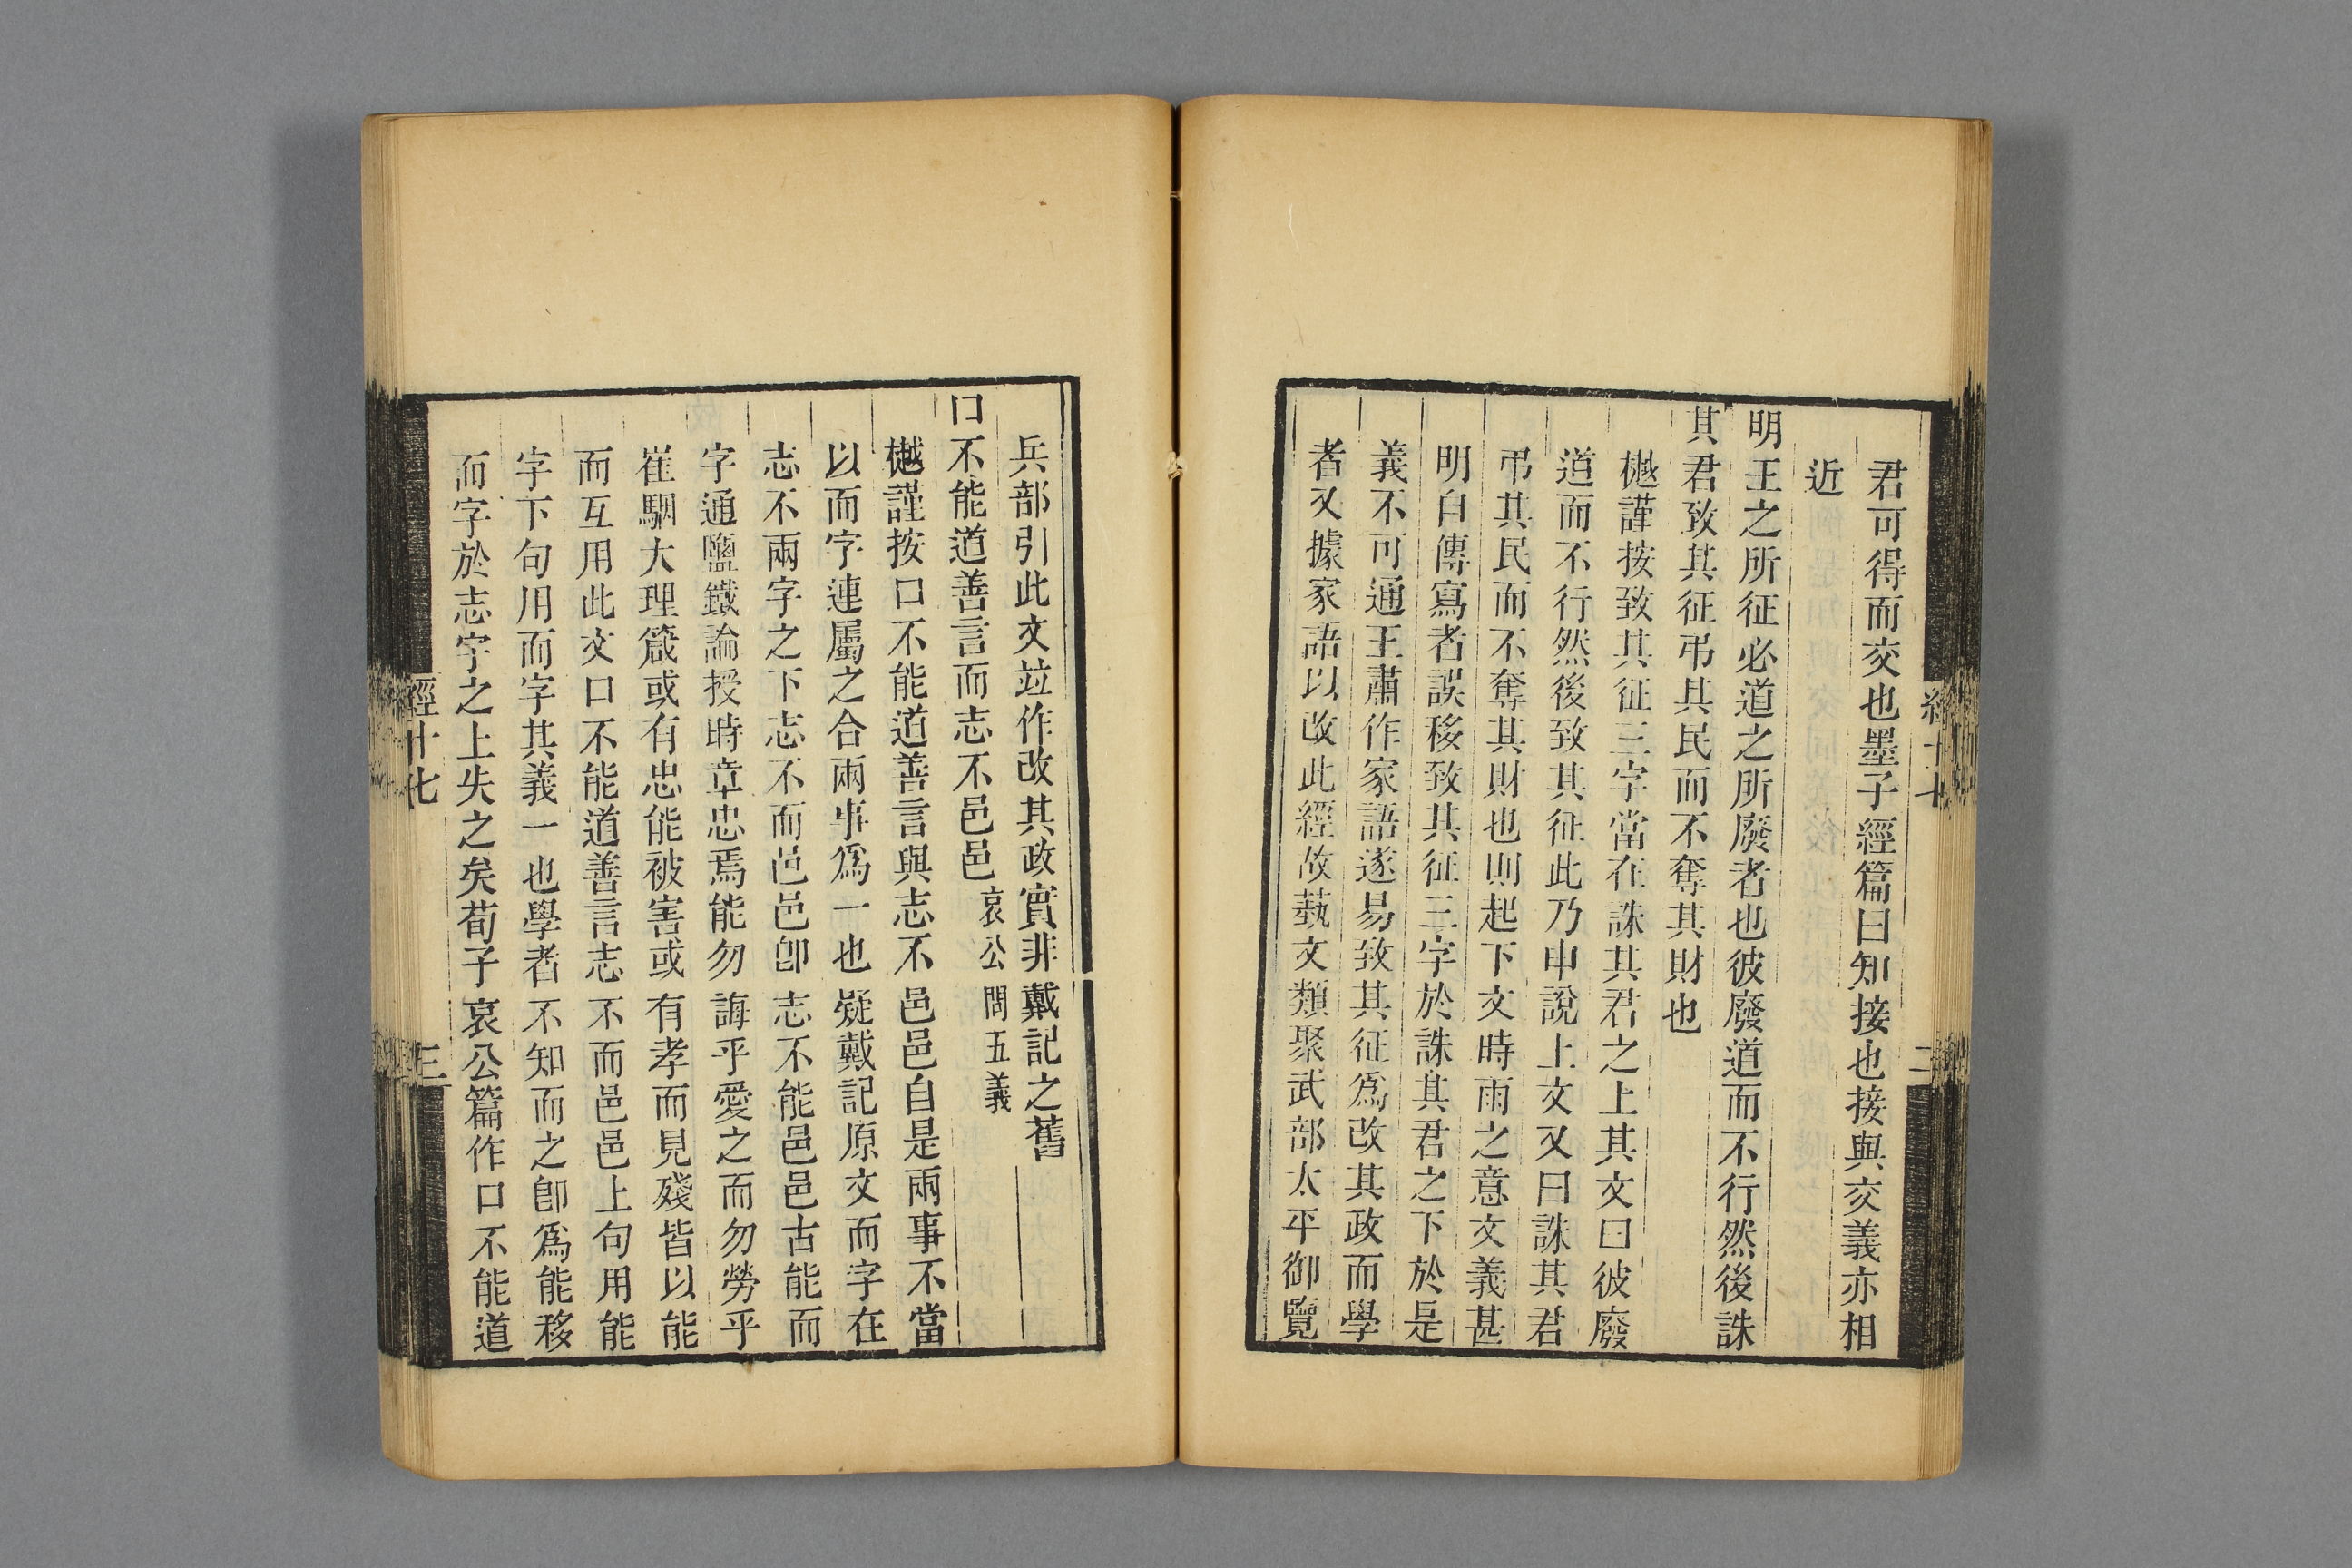 君可得而交也墨子經篇曰知接也接與交義亦相
近
明王之所征必道之所廢者也彼廢道而不行然後誅
其君致其征弔其民而不奪其財也
樾謹按致其征三字當在誅其君之上其文曰彼廢
道而不行然後致其征此乃申說上文又曰誅其君
弔其民而不奪其財也則起下文時雨之意文義甚
明白傳寫者誤移致其征三字於誅其君之下於是
義不可通王肅作家語遂易致其征爲改其政而學
者又據家語以改此經故藝文類聚武部太平御覽
兵部引此文竝作改其政實非戴記之舊
口不能道善言而志不邑邑哀公問五義
樾謹按口不能道善言與志不邑邑自是兩事不當
以而字連屬之合兩事爲一也疑戴記原文而字在
志不兩字之下志不而邑邑卽志不能邑邑古能而
字通鹽鐵論授時章忠焉能勿誨乎愛之而勿勞乎
崔駰大理箴或有忠能被害或有孝而見殘皆以能
而互用此文口不能道善言志不而邑邑上句用能
字下句用而字其義一也學者不知而之卽爲能移
而字於志字之上失之矣荀子哀公篇作口不能道
經十七
三